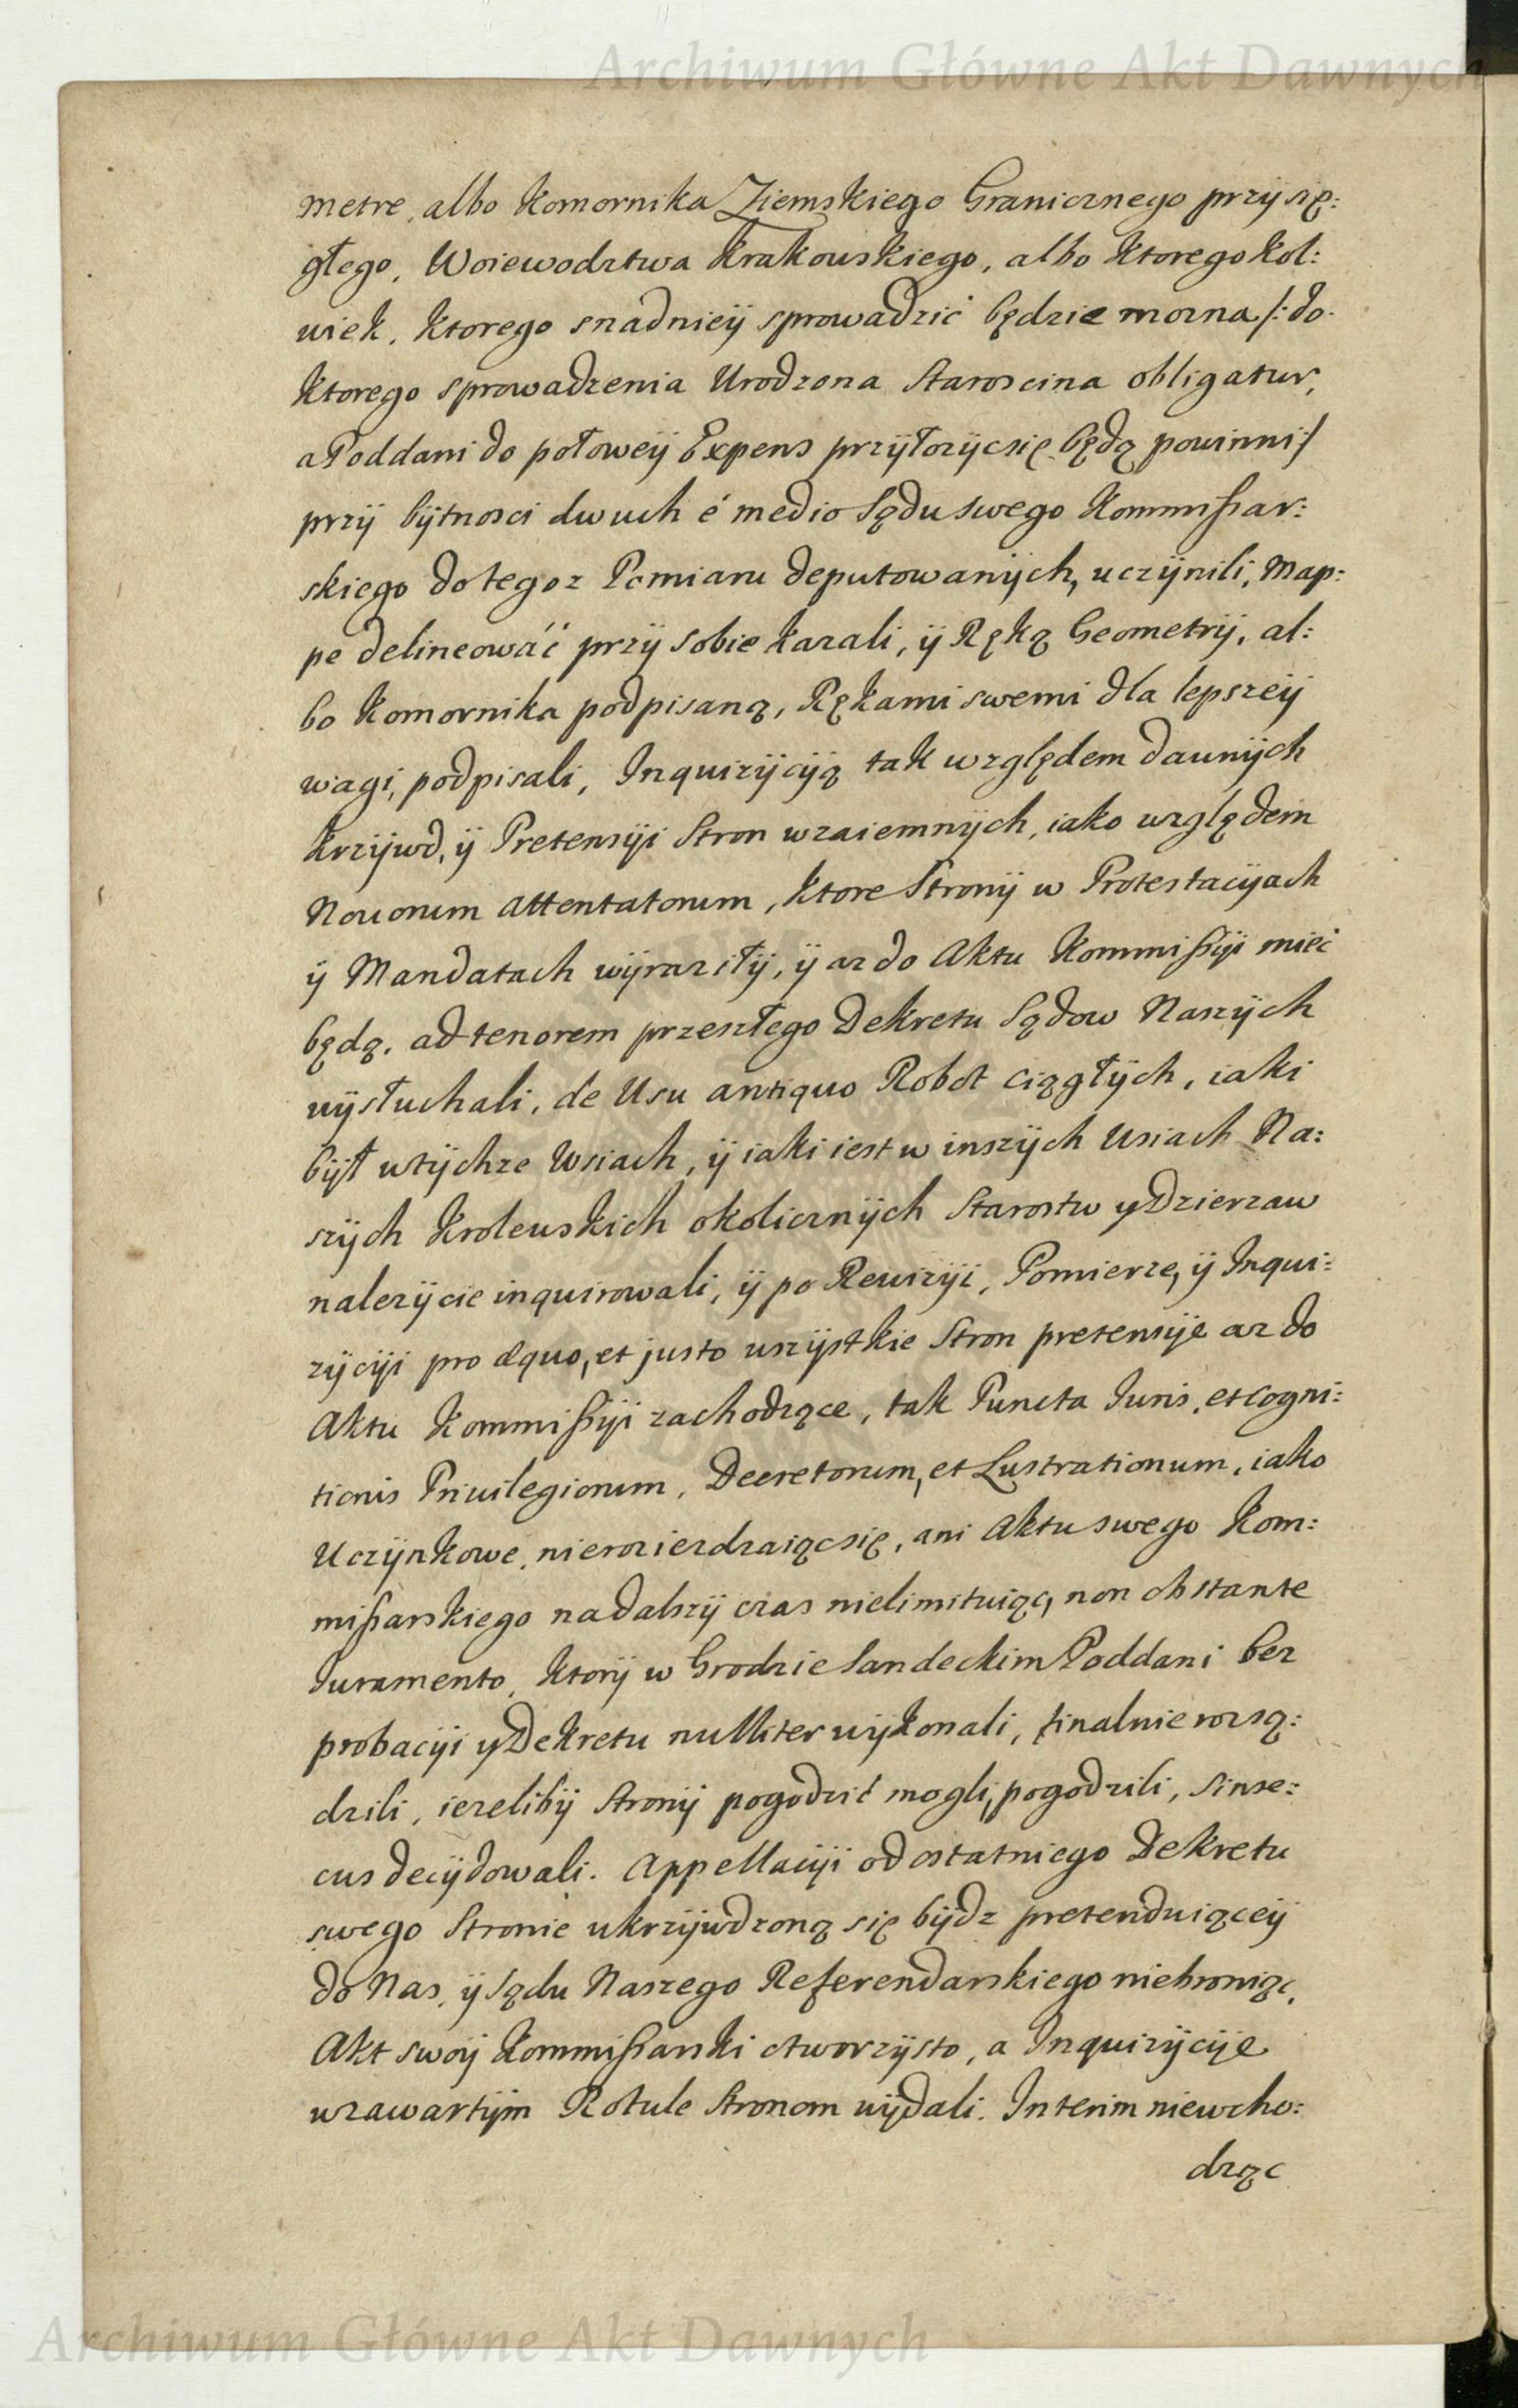 Archiwum Główne Akt Dawnych
metre, albo Komornika Ziemskiego Granicznego przysię:
głego, Woiewodztwa Krakowskiego, albo ktorego kol:
wiek, ktorego snadnieÿ sprowadzić będzie mozna /: do
ktorego sprowadzenia Urodzona Staroscina obligatur,
a Poddani do połoweÿ Expens przÿłozÿc się będą powinni /
przÿ bÿtnosci dwuch é medio Sądu swego Kommissar:
skiego do tegoz Pomiaru deputowanÿch, uczÿnili, Map:
pe delineować przÿ sobie kazali, ÿ Ręką Geometrÿ, al:
bo Komornika podpisaną, Rękami swemi dla lepszeÿ
wagi, podpisali, Inquizÿcÿą tak względem daunÿch
krzÿwd, ÿ Pretensÿi Stron wzaiemnÿch, iako względem
Nouorum Attentatorum, ktore Stronÿ w Protestacÿach
ÿ Mandatach wÿraziłÿ, ÿ az do Aktu Kommissÿi mieć
będą, ad tenorem przeszłego Dekretu Sądow Naszÿch
wÿsłuchali, de Usu antiquo Robot ciągłÿch, iaki
bÿł w tÿchze Wsiach, ÿ iaki iest w inszÿch Wsiach Na:
szÿch Krolewskich okolicznÿch Starostw y Dzierzaw
nalezÿcie inquirowali, ÿ po Rewizÿi, Pomierze, ÿ Inqui:
zÿcÿi pro æquo, et justo wszÿstkie Stron pretensÿe az do
Aktu Kommissÿi zachodzące, tak Puncta Iuris, et cogni:
tionis Priuilegiorum, Decretorum, et Lustrationum, iako
Uczÿnkowe, nierozierdzaiąc się, ani Aktu swego Kom:
missarskiego na dalszÿ czas nielimituiąc, non obstante
Iuramento, ktorÿ w Grodzie Sandeckim Poddani bez
probacÿi y Dekretu nulliter wÿkonali, finalnie rozsą:
dzili, iezelibÿ Stronÿ pogodzić mogli, pogodzili, sinse:
cus decÿdowali. Appellacÿi od ostatniego Dekretu
swego Stronie ukrzÿwdzoną się bÿdz pretenduiąceÿ
do Nas, ÿ Sądu Naszego Referendarskiego niebroniąc,
Akt swoÿ Kommissarski otworzÿsto, a Inquizÿcÿe
w zawartÿm Rotule Stronom wÿdali. Interim niewcho:
dząc
Archiwum Główne Akt Dawnych